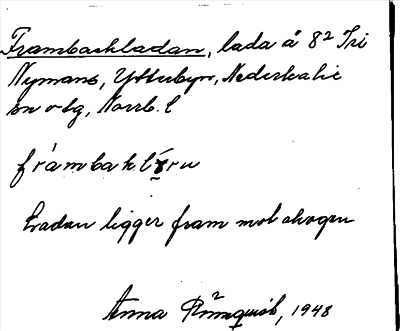 Frambackladan, lada å 8² Tri
Nymans, Ytterbyn, Nederkalix
sn o tg, Norrb. l
frámbaklɤ́ru
Ladan ligger fram mot skogen
Anna 1948